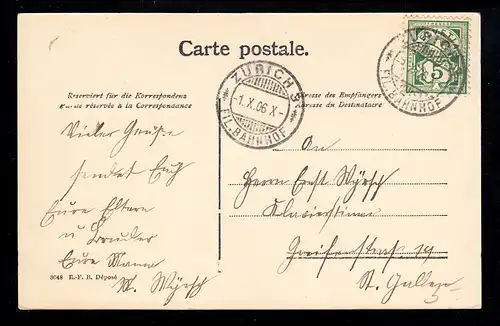 Carte postale.
Reserviert für die Korrespondenz
Partie réservée à la Correspondance
Adresse des Empfängers
Adresse du Destinataire
ZÜRICH
-1.X.06 X-
FIL. BAHNHOF
5
ZÜRICH
FIL. BAHNHOF
Vieler Grüße
sendet Euch
Eure Eltern
u Bruder
Eure Mama
M. Wyrsch
An
Herrn Ernst Wyrsch
Klavierstimmer
Greifenstraß. 19
St. Gallen
3048 E.-F. B. Déposé